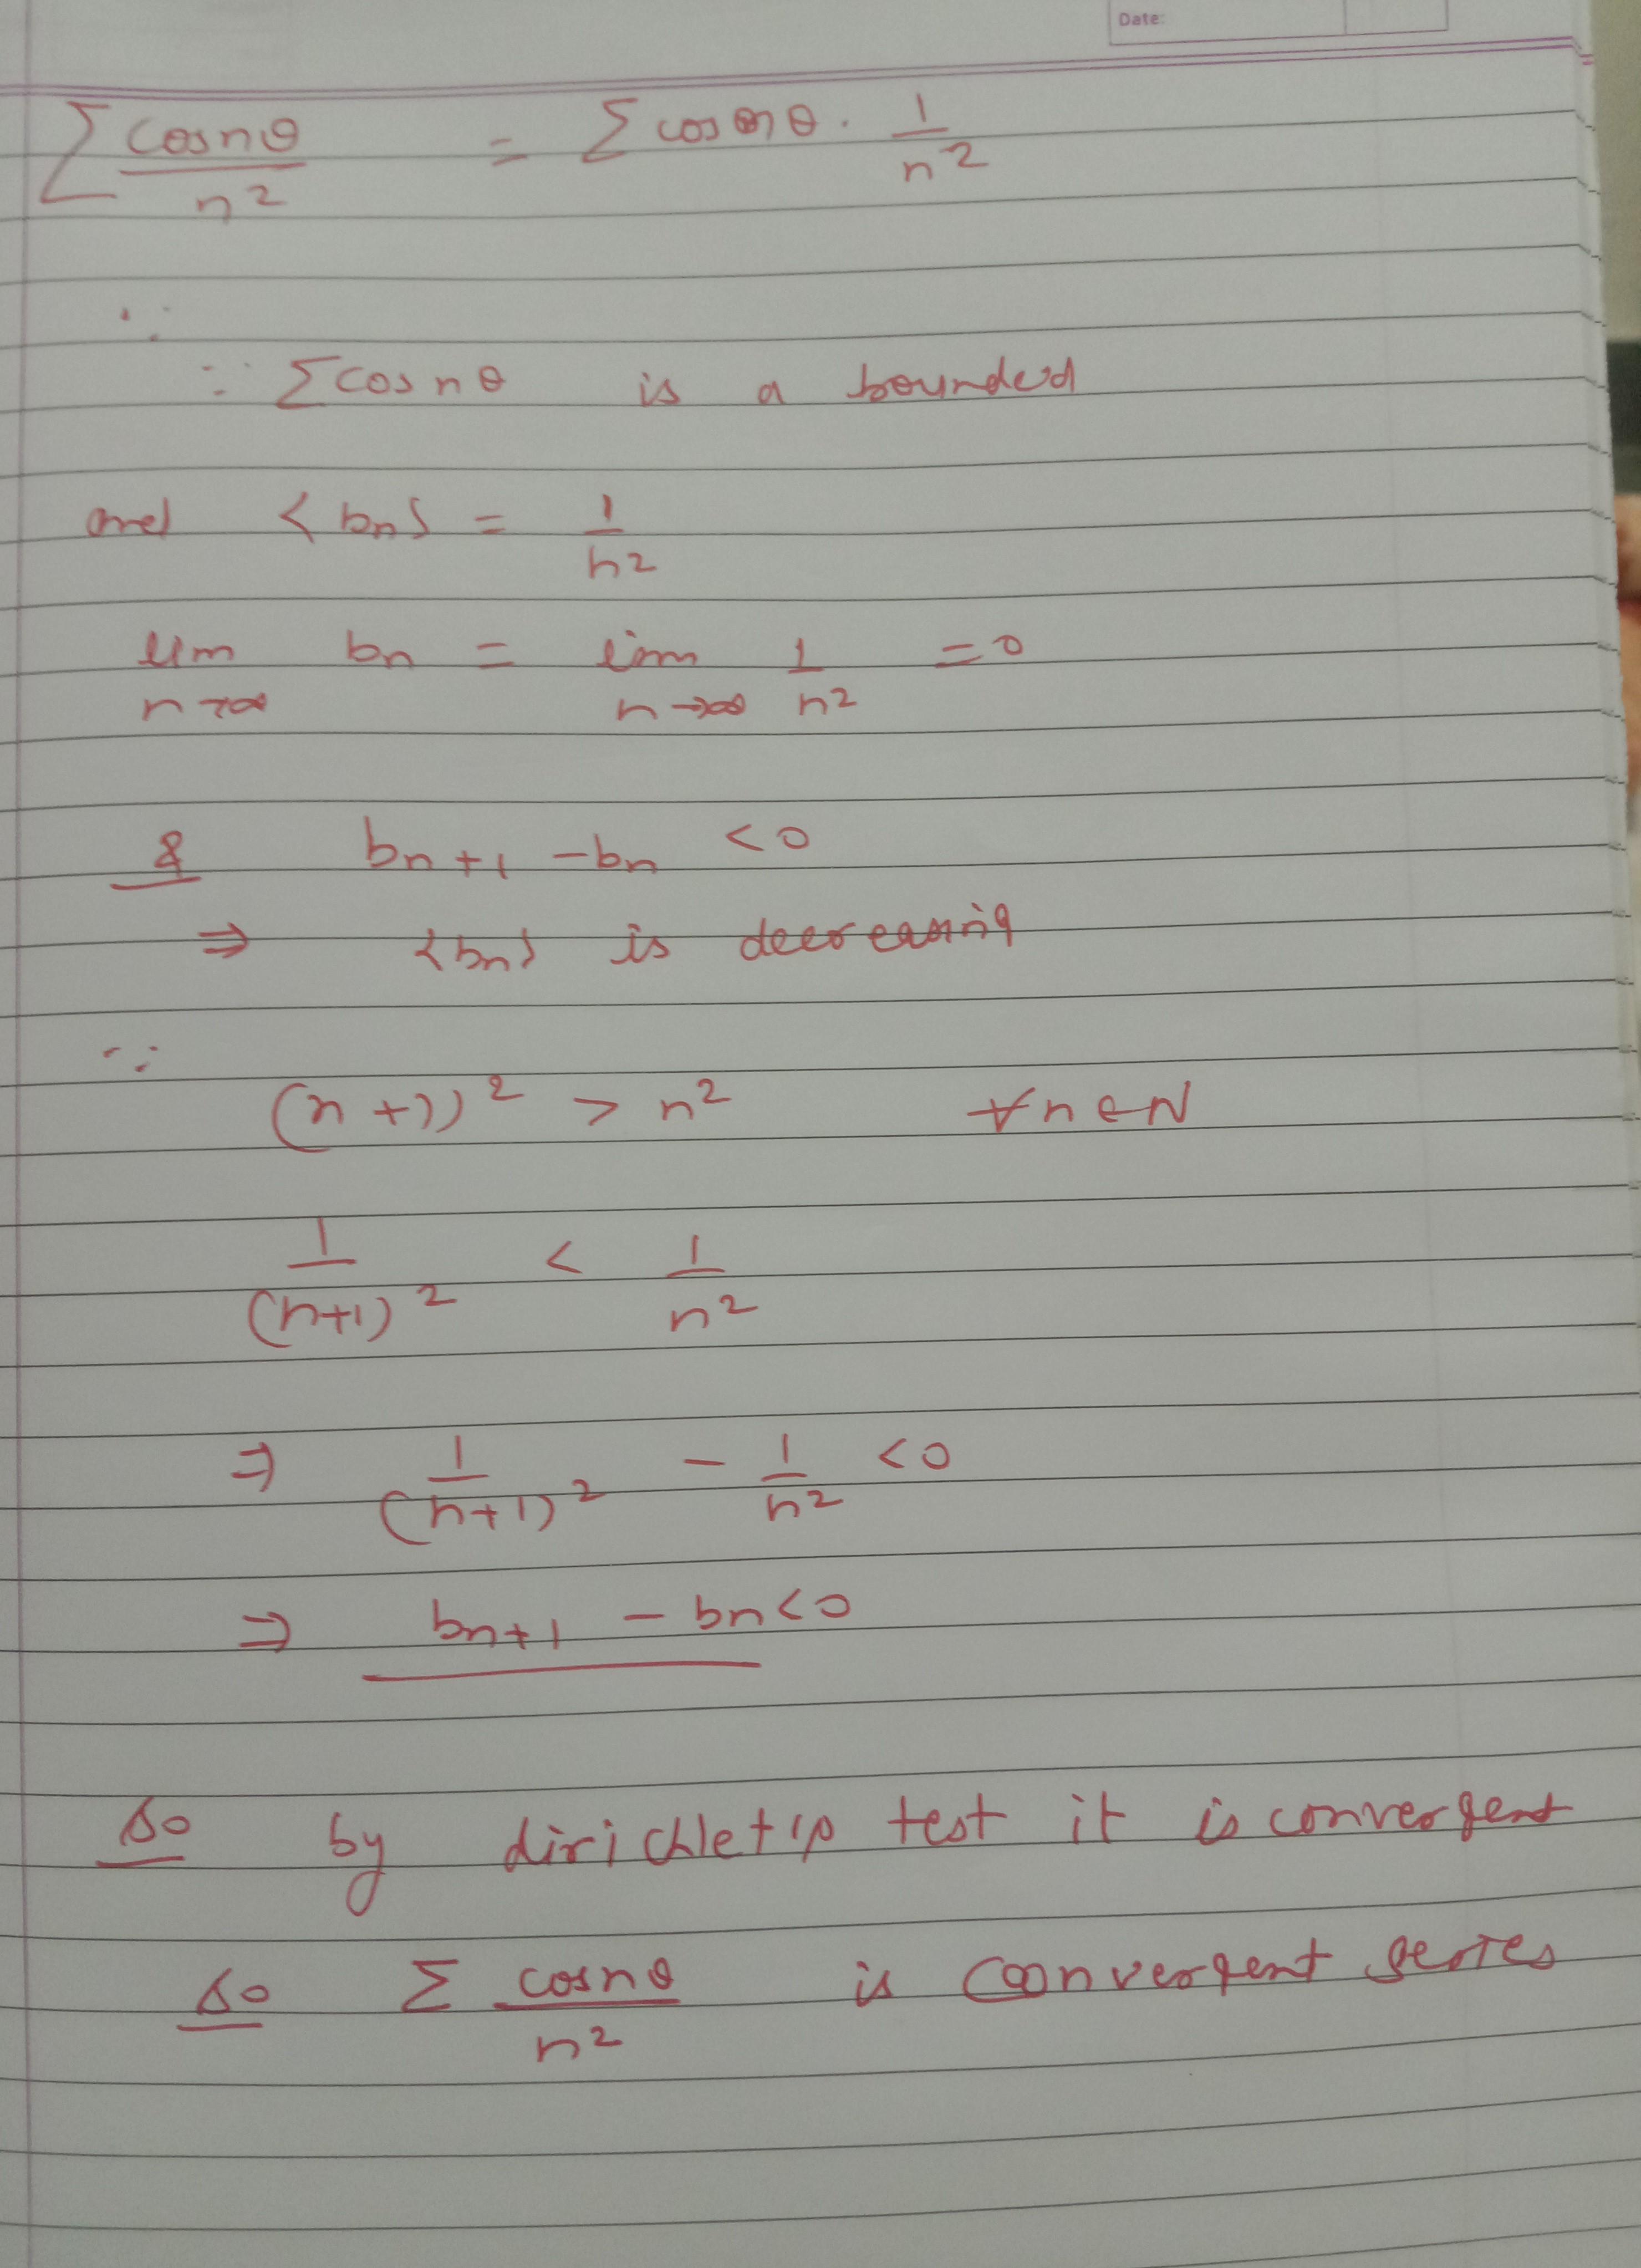 Date:
∑ cosnθ / n² = ∑ cos nθ · 1/n²
∵
∵ ∑cos nθ is a bounded
and < bn> = 1/n²
lim n→∞ bn = lim n→∞ 1/n² = 0
& bn+1 - bn < 0
⇒ <bn> is decreasing
∵
(n+1)² > n² ∀n∈N
1/(n+1)² < 1/n²
⇒ 1/(n+1)² - 1/n² < 0
⇒ bn+1 - bn < 0
so by dirichlet's test it is convergent
so ∑ cosnθ / n² is convergent series